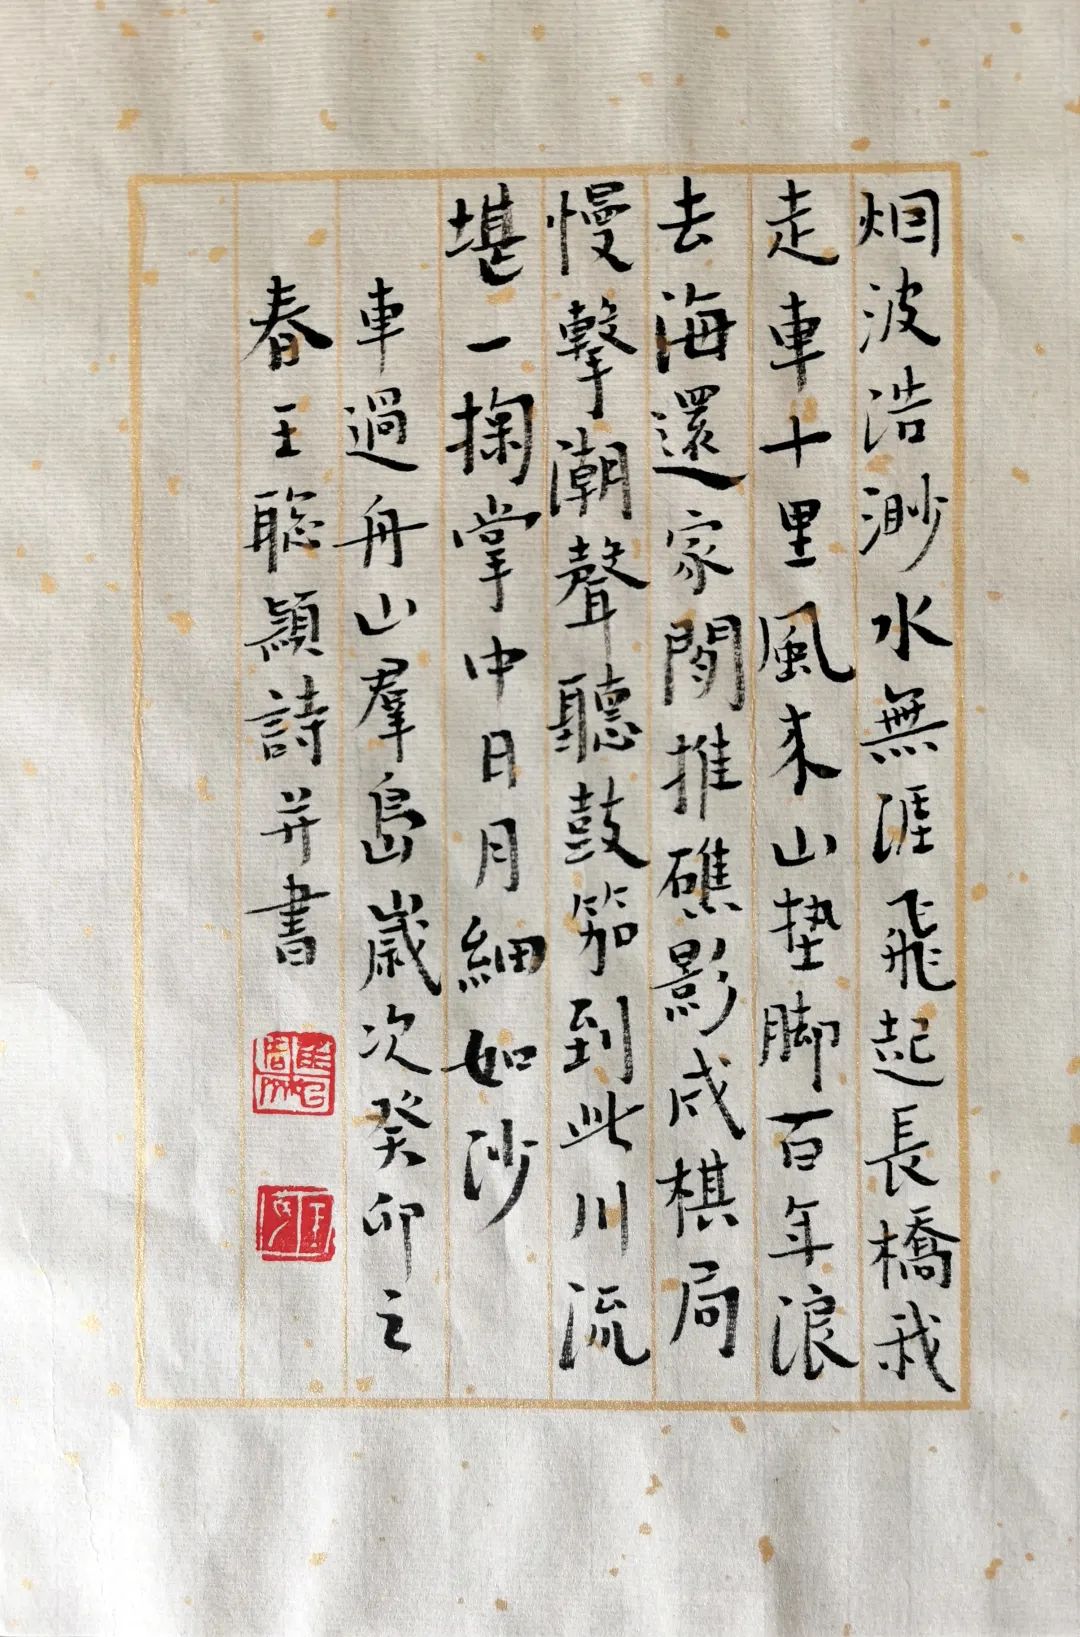 烟波浩渺水無涯飛起長橋我
走車十里風来山墊脚百年浪
去海還家閒推礁影成棋局
慢擊潮聲聽鼓笳到此川流
堪一掬掌中日月細如沙
車過舟山羣島歲次癸卯之
春王聪頴詩并書